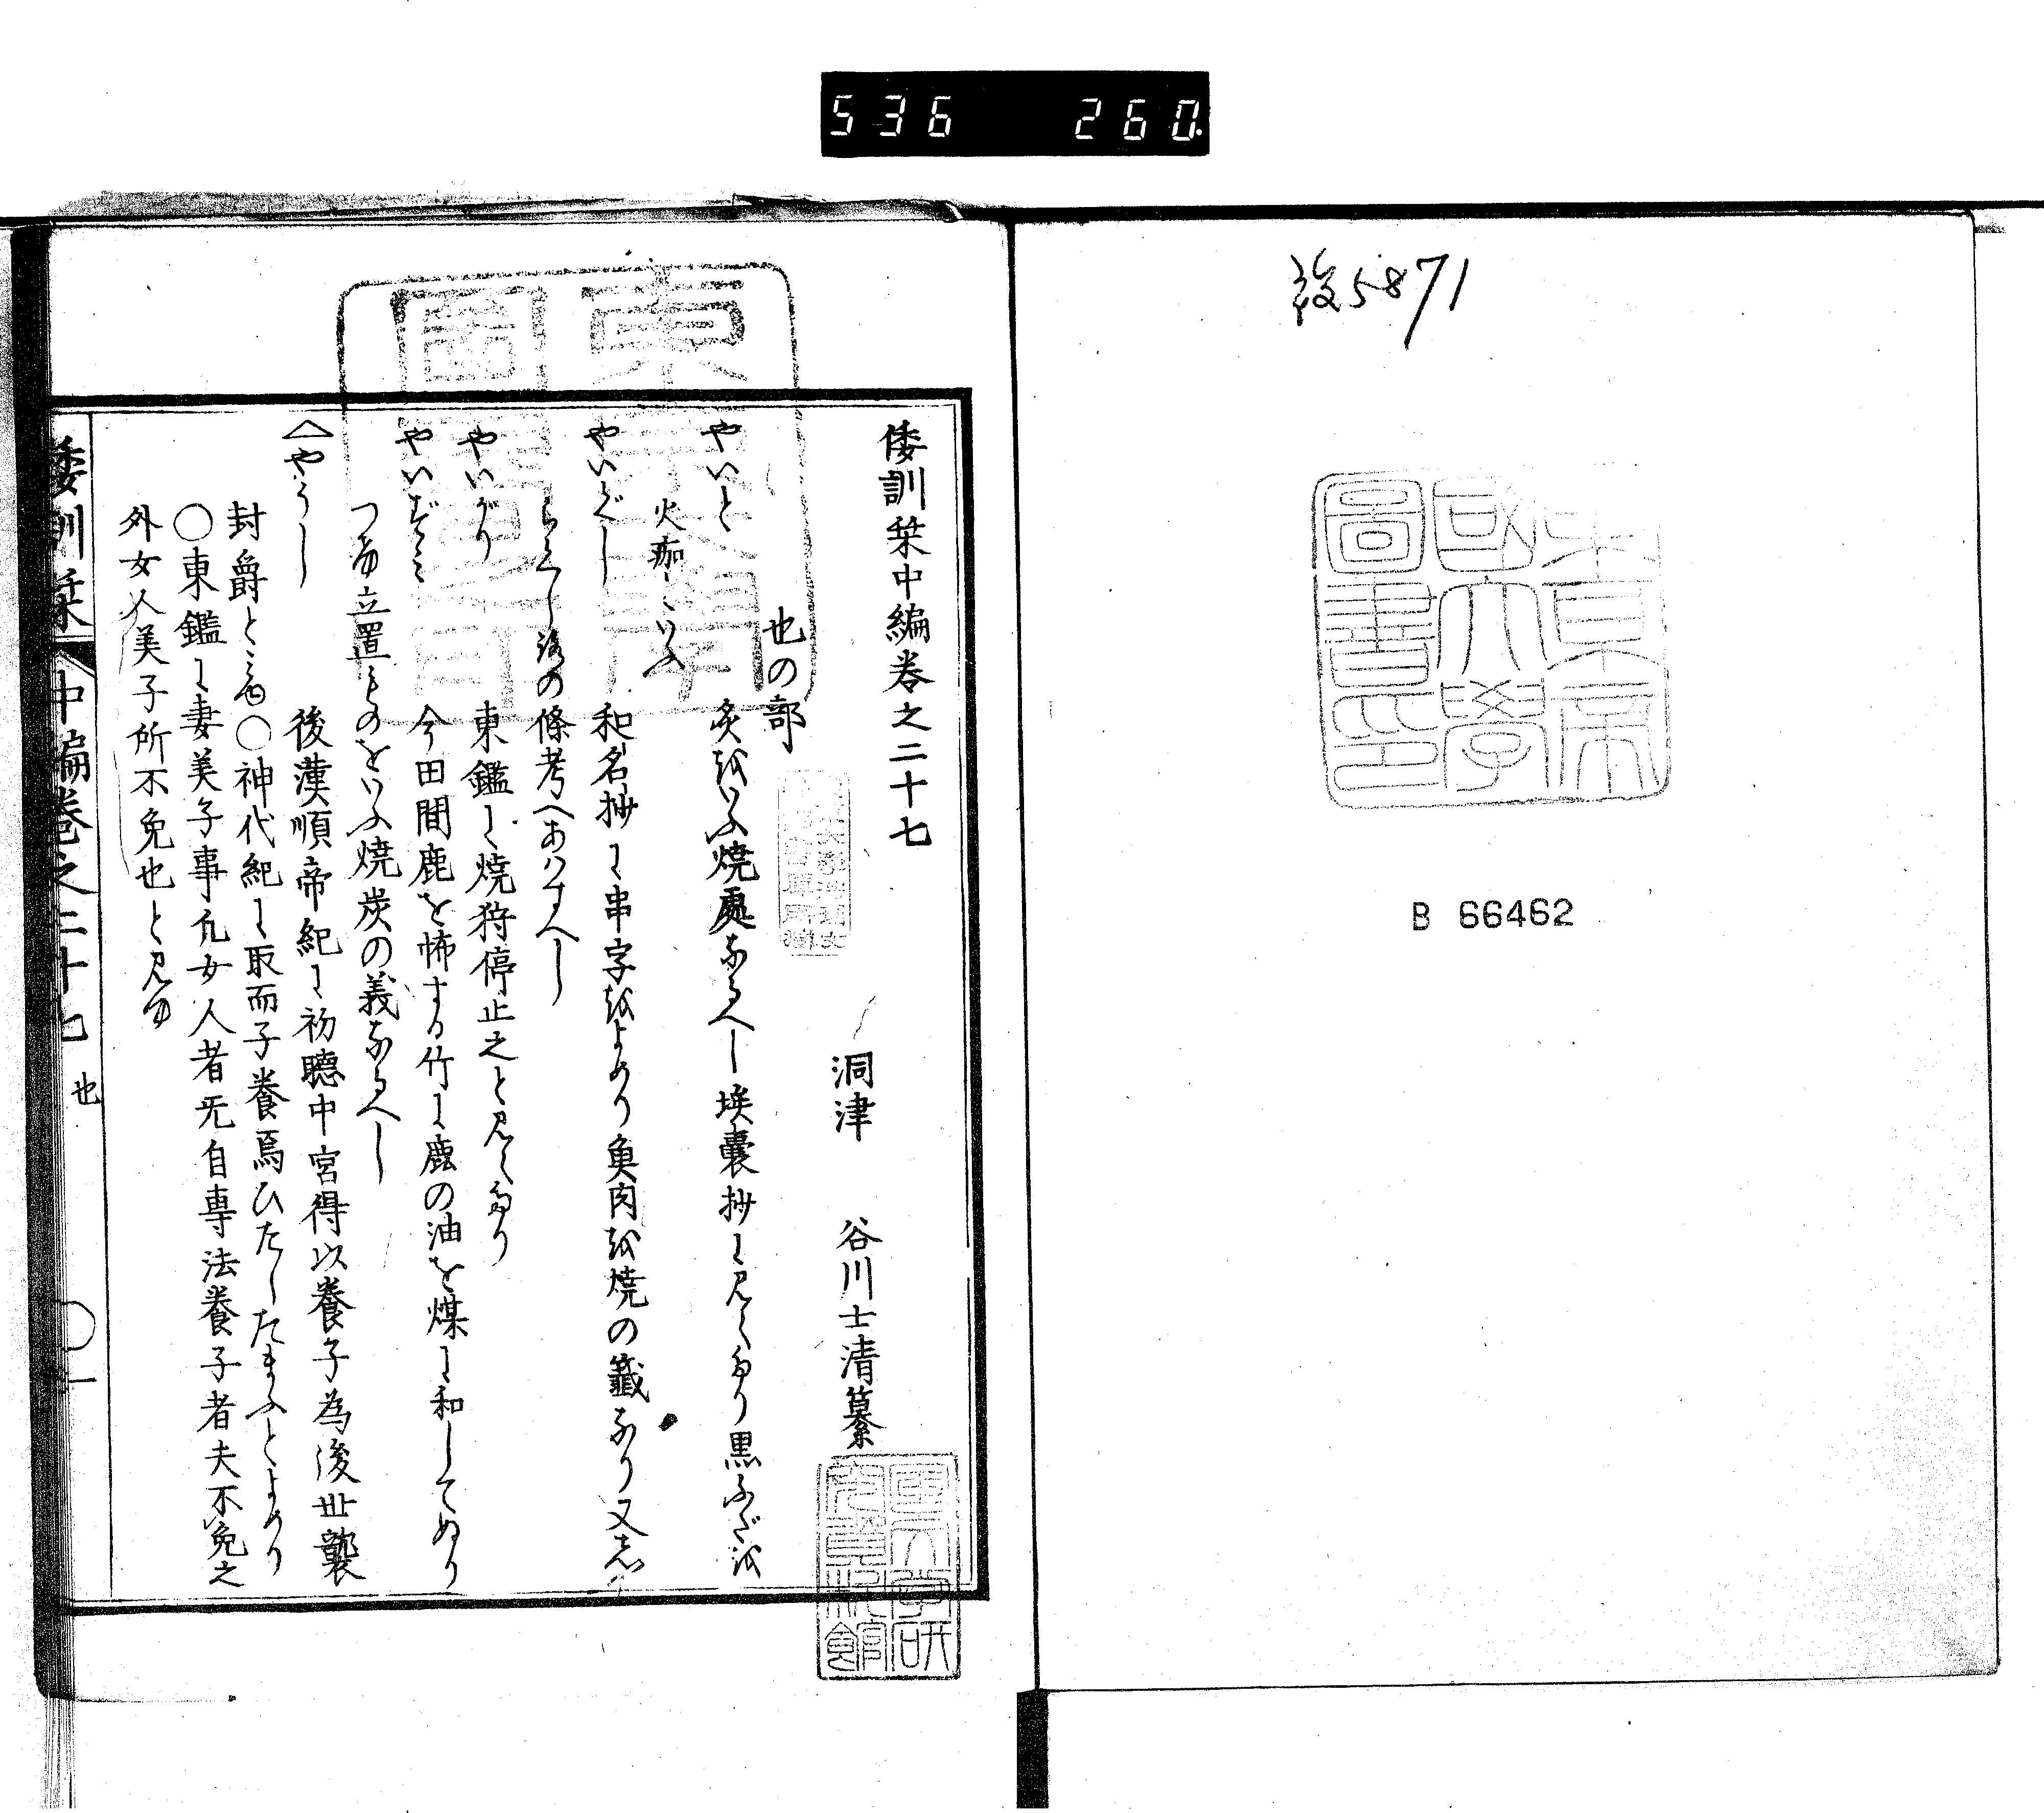 536 260
後5871
東京帝
国大学
圖書印
B 66462
倭訓栞中編巻之二十七
洞津 谷川士清纂
也の部
やいと 灸をいふ焼處なるへし埃嚢抄に見えたり黒ふだを
火痂といふ
やいぐし 和名抄に串字をよめり魚肉を焼の籤なり又志
らくし路の條考へあはすへし
やいがり 東鑑に焼狩停止之と見えたり
やいずミ 今田間鹿を怖する竹に鹿の油を煤に和してぬり
つけ立置ものをいふ焼炭の義なるへし
へやうし 後漢順帝紀に初聴中宮得以養子為後世襲
封爵と見ゆ〇神代紀に取而子養焉ひたしたまふとよめり
〇東鑑に妻美子事凡女人者无自専法養子者夫不免之
外女人美子所不免也と見ゆ
倭訓栞 中編巻之二十七 也 〇一